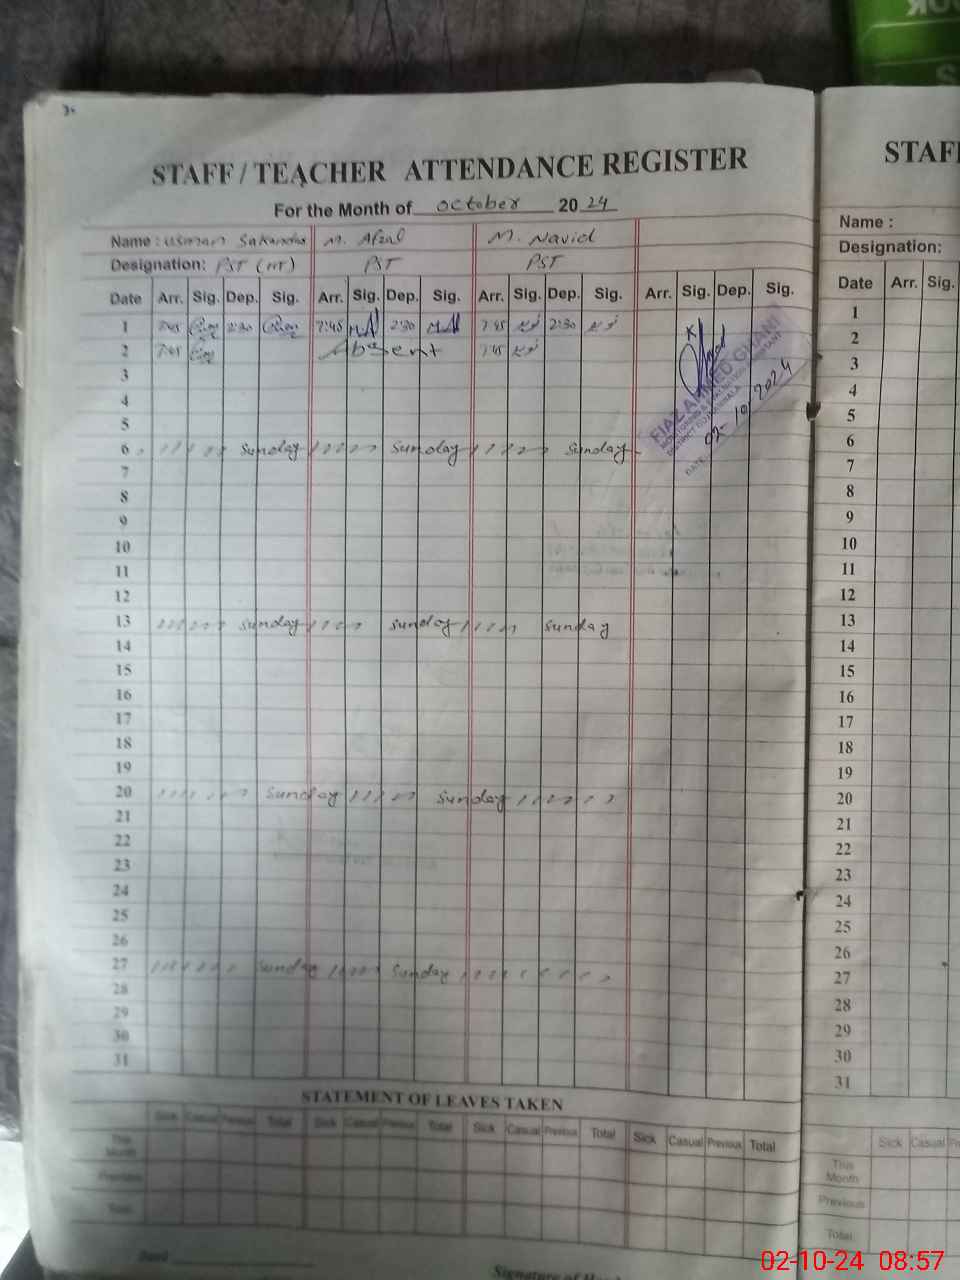 STAFF / TEACHER ATTENDANCE REGISTER
STAFF
For the Month of October 2024
Name : Usman M. Afzal M. Navid
Name :
Designation: PST (HT) PST PST
Designation:
Date Arr. Sig. Dep. Sig. Arr. Sig. Dep. Sig. Arr. Sig. Dep. Sig. Arr. Sig. Dep. Sig.
Date Arr. Sig.
1 7:45 2:30 7:45 2:30 7:45 2:30
2 7:45 Absent 7:45
3
4
5
6 Sunday Sunday Sunday
7
8
9
10
11
12
13 Sunday Sunday Sunday
14
15
16
17
18
19
20 Sunday Sunday
21
22
23
24
25
26
27 Sunday Sunday
28
29
30
31
1
2
3
4
5
6
7
8
9
10
11
12
13
14
15
16
17
18
19
20
21
22
23
24
25
26
27
28
29
30
31
FIAZ AHMED GHANI
MONITORING & EVALUATION ASSISTANT
DATE: 02-10/2024
STATEMENT OF LEAVES TAKEN
Sick Casual Previous Total Sick Casual Previous Total Sick Casual Previous Total Sick Casual Previous Total
Sick Casual
This Month
Previous
Total
This Month
Previous
Total
Signature of
02-10-24 08:57